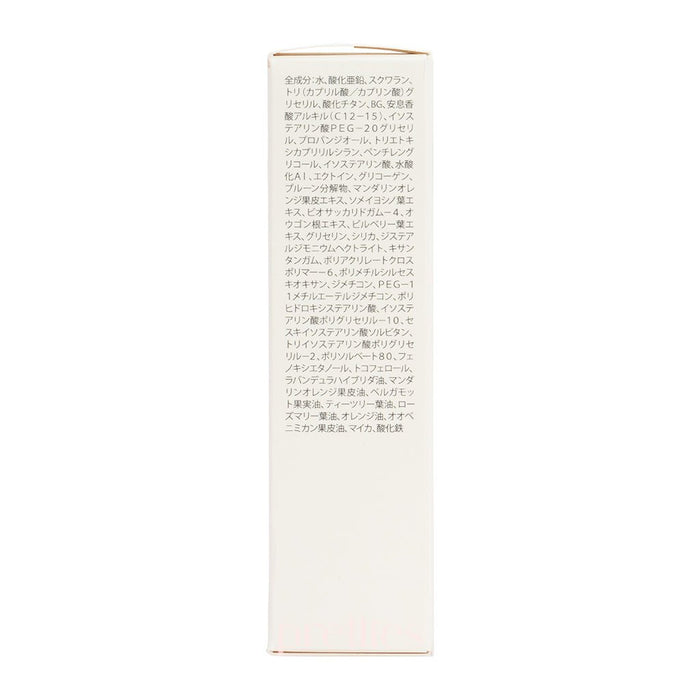 全成分：水、酸化亜鉛、スクワラン、
トリ（カプリル酸／カプリン酸）グ
リセリル、酸化チタン、BG、安息香
酸アルキル（C12－15）、イソス
テアリン酸PEG－20グリセリ
ル、プロパンジオール、トリエトキ
シカプリリルシラン、ペンチレング
リコール、イソステアリン酸、水酸
化Al、エクトイン、グリコーゲン、
プルーン分解物、マンダリンオレ
ンジ果皮エキス、ソメイヨシノ葉エ
キス、ビオサッカリドガム－4、オ
ウゴン根エキス、ビルベリー葉エ
キス、グリセリン、シリカ、ジステア
ルジモニウムヘクトライト、キサン
タンガム、ポリアクリレートクロス
ポリマー－6、ポリメチルシルセス
キオキサン、ジメチコン、PEG－1
1メチルエーテルジメチコン、ポリ
ヒドロキシステアリン酸、イソステ
アリン酸ポリグリセリル－10、セ
スキイソステアリン酸ソルビタン、
トリイソステアリン酸ポリグリセ
リル－2、ポリソルベート80、フェ
ノキシエタノール、トコフェロール、
ラバンデュラハイブリダ油、マンダ
リンオレンジ果皮油、ベルガモッ
ト果実油、ティーツリー葉油、ロー
ズマリー葉油、オレンジ油、オオベ
ニミカン果皮油、マイカ、酸化鉄